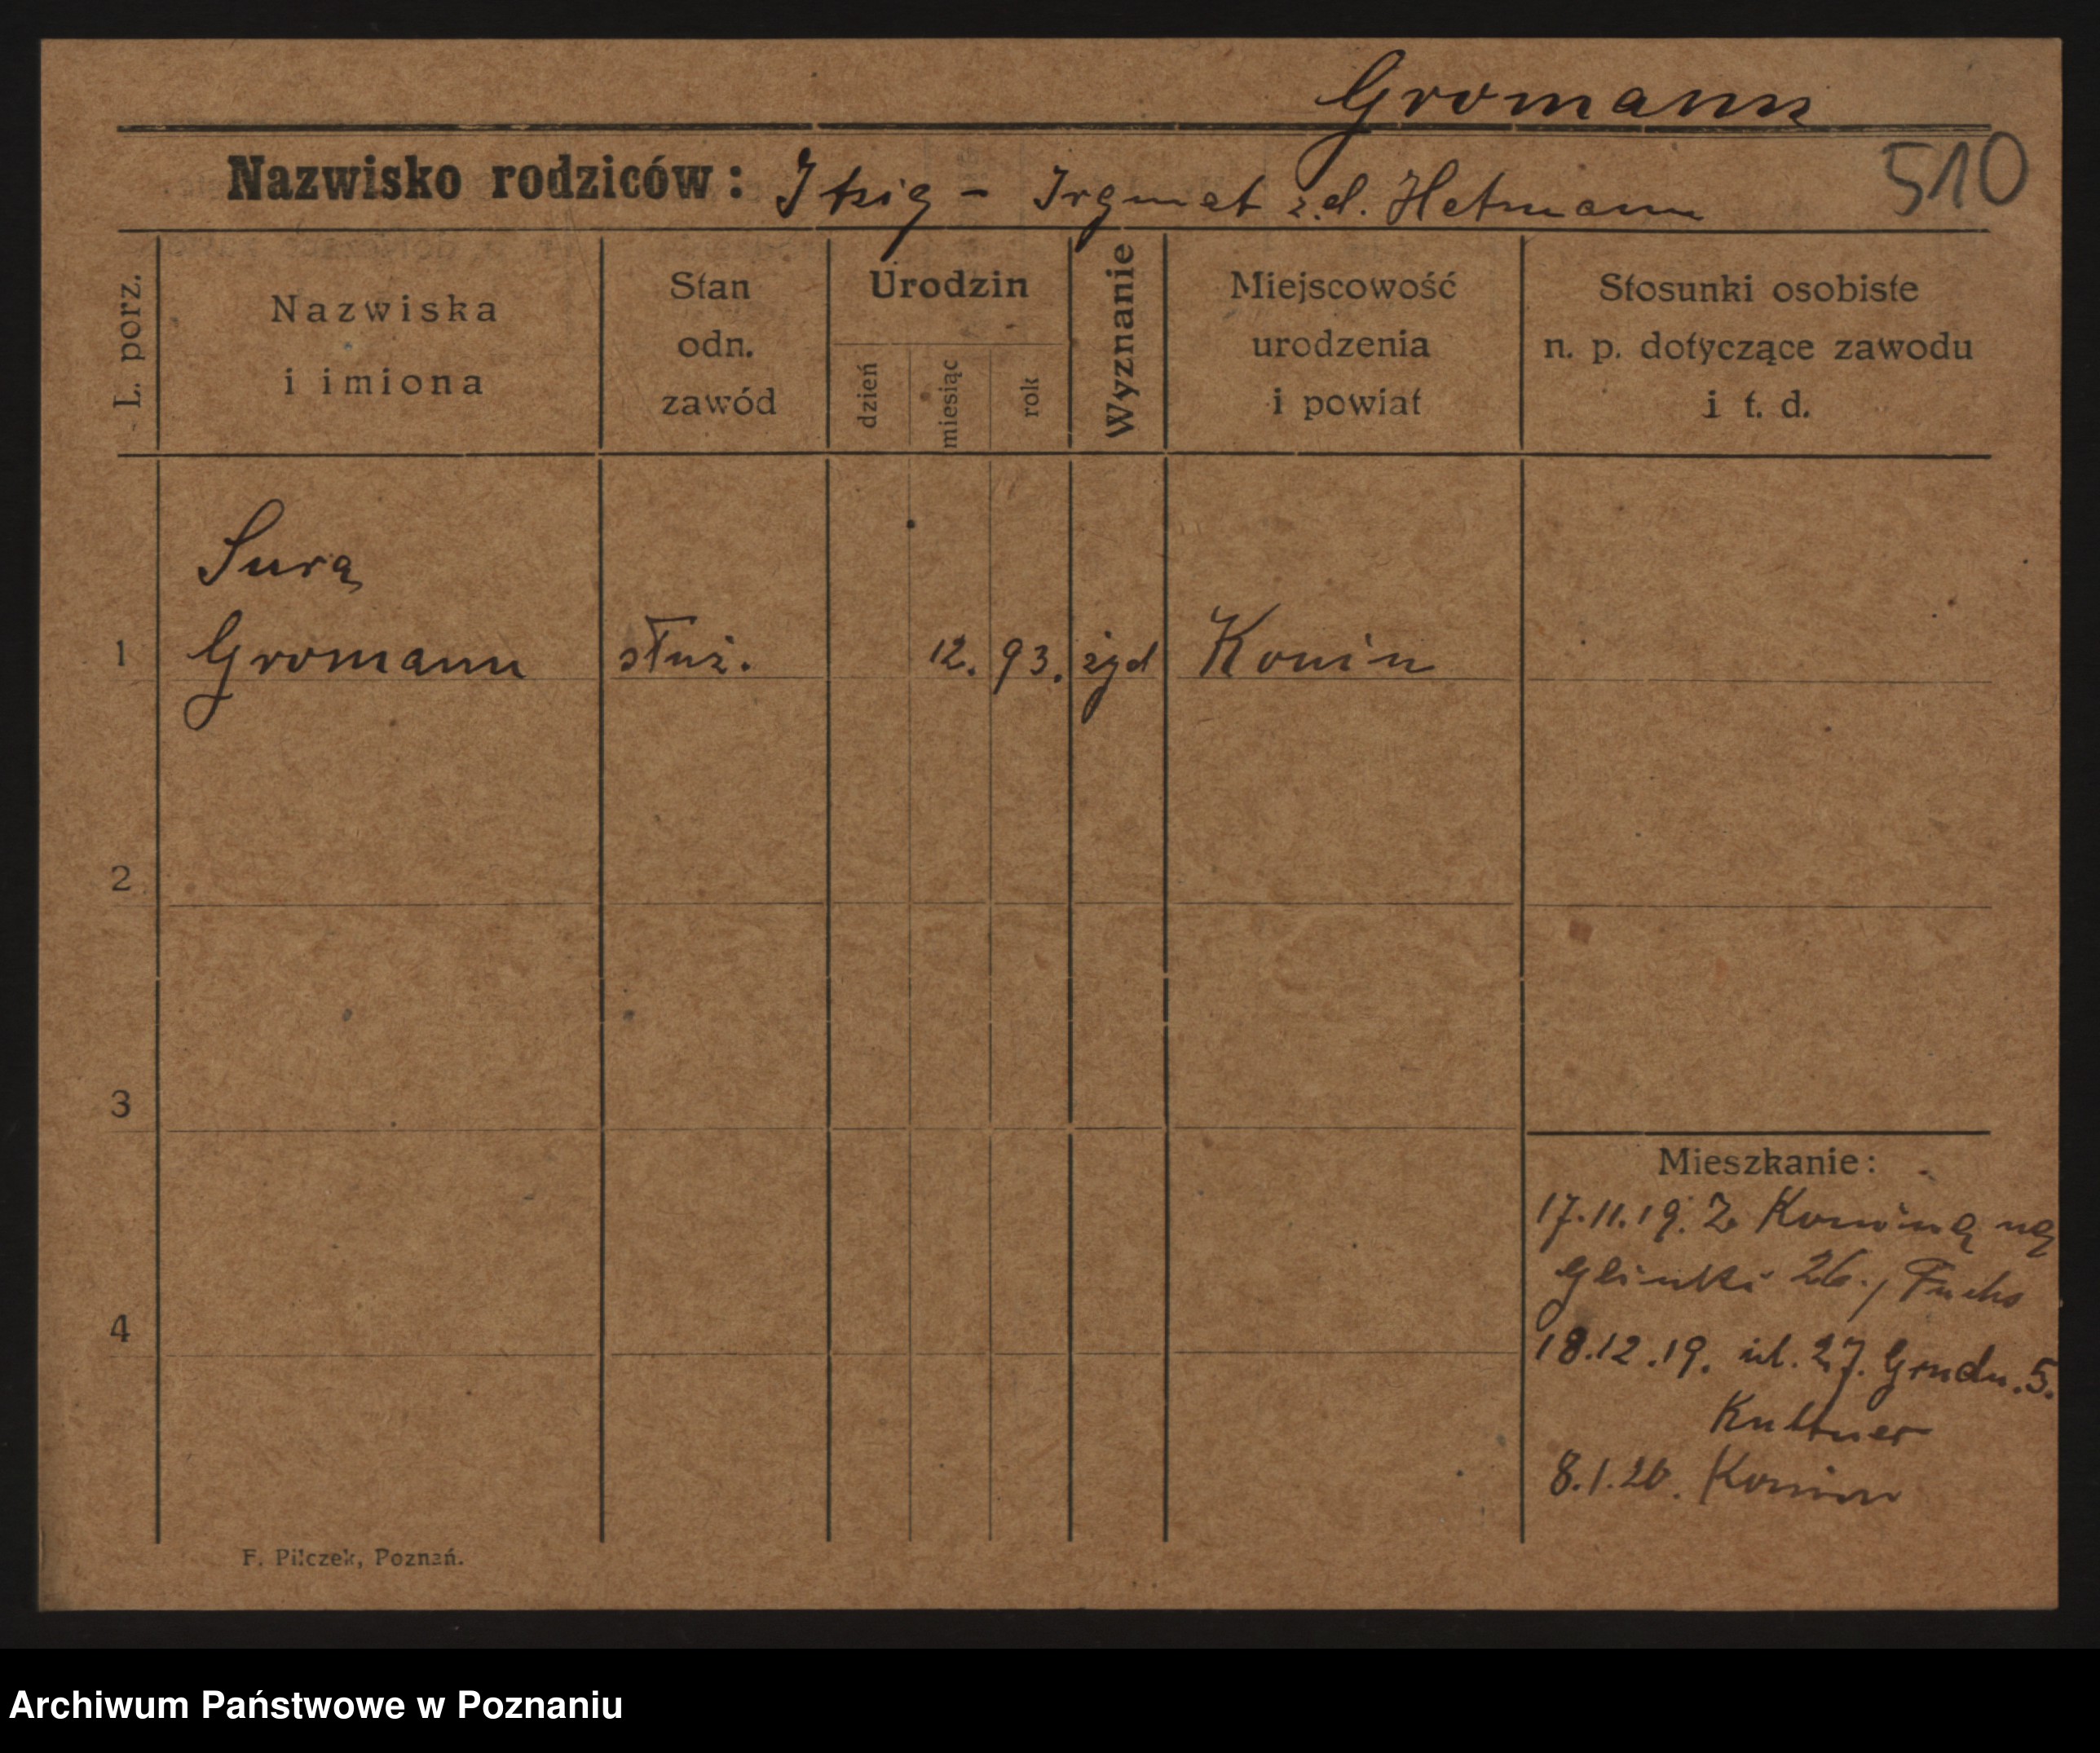 Gromann
Nazwisko rodziców: Itzig - z.d. Hetmann
510
L. porz.
Nazwiska
i imiona
Stan
odn.
zawód
Urodzin
dzień
miesiąc
rok
Wyznanie
Miejscowość
urodzenia
i powiat
Stosunki osobiste
n. p. dotyczące zawodu
i t. d.
Sura
1 Gromann służ. 12. 93. żyd Konin
2
3
4
Mieszkanie:
17.11.19. Z Konina na
Glinki 26., Fuchs
18.12.19. ul. 27. Grudn. 5.
Kuttner
8.1.20. Konin
F. Pilczek, Poznań.
Archiwum Państwowe w Poznaniu